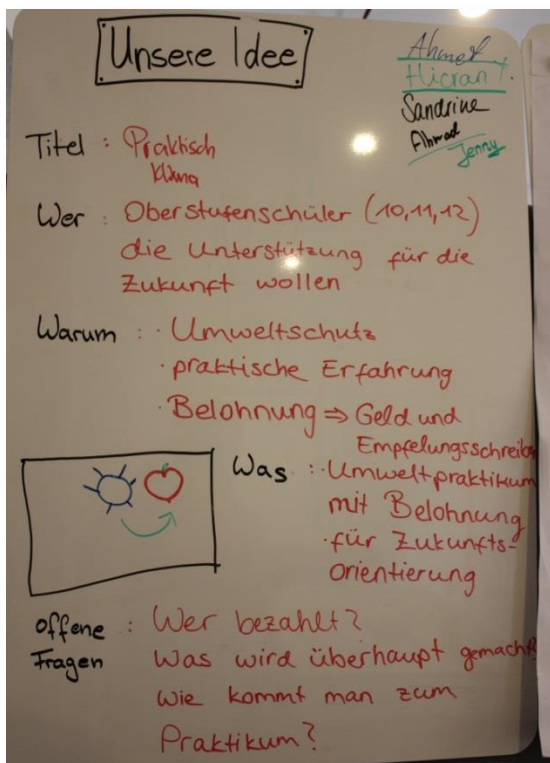 Unsere Idee
Ahmet
Hicran Y.
Sandrine
Ahmad
Jenny
Titel : Praktisch
Klima
Wer : Oberstufenschüler (10,11,12)
die Unterstützung für die
Zukunft wollen
Warum : · Umweltschutz
· praktische Erfahrung
· Belohnung ⇒ Geld und
Empfelungsschreiben
Was : · Umweltpraktikum
mit Belohnung
· für Zukunfts-
orientierung
offene : Wer bezahlt?
Fragen Was wird überhaupt gemacht?
Wie kommt man zum
Praktikum?